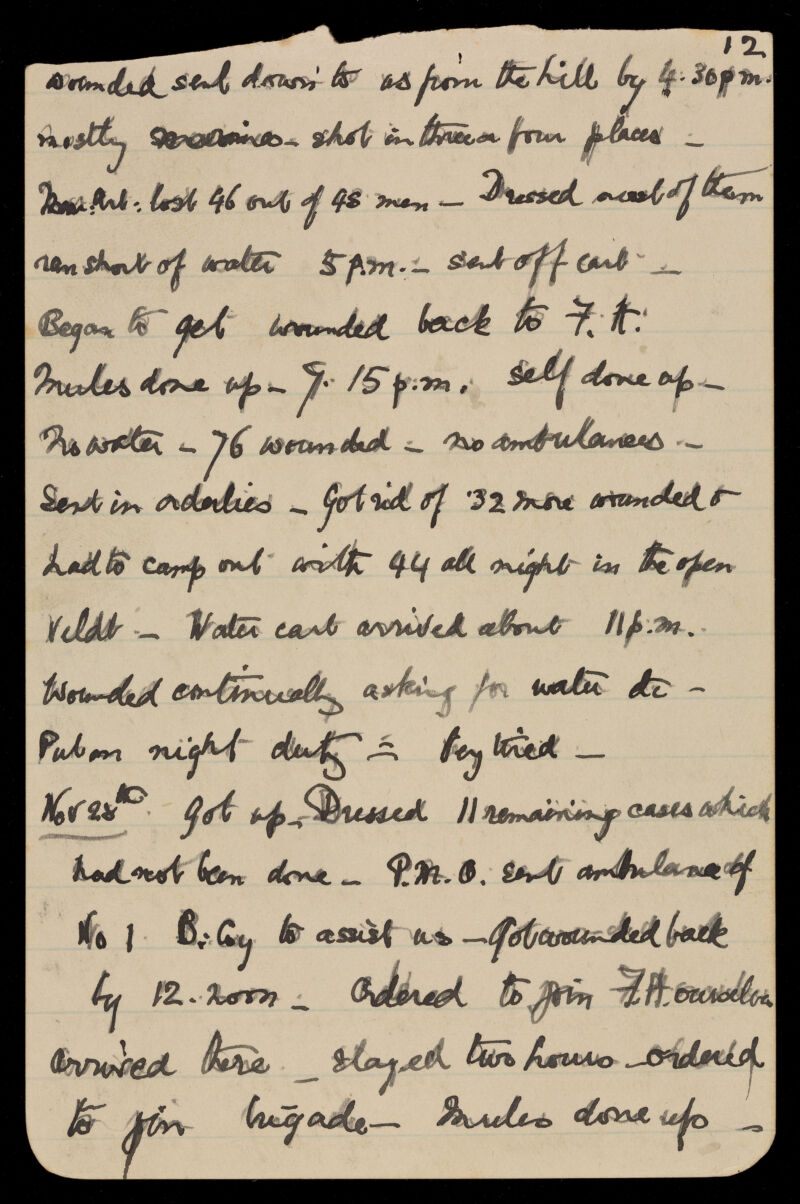 12
wounded sent down to us from the hill by 4.30 p.m.
mostly marines - shot in three or four places -
lost 46 out of 48 men - Dressed most of them
ran short of water 5 p.m. - sent off cart -
Began to get wounded back to F. H.
Mules done up - 7. 15 p.m. self done up -
No water - 76 wounded - no ambulances -
Sent in orderlies - Got rid of 32 more wounded &
had to camp out with 44 all night in the open
Veldt - Water cart arrived about 11 p.m.
Wounded continually asking for water etc -
Put on night duty = Very tired -
Nov 28th Got up - Dressed 11 remaining cases which
had not been done - P.M.O. sent ambulance of
No 1 B. Coy to assist us - Got wounded back
by 12. noon - Ordered to join F.H. ourselves
arrived there - stayed two hours - ordered
to join brigade - Mules done up -